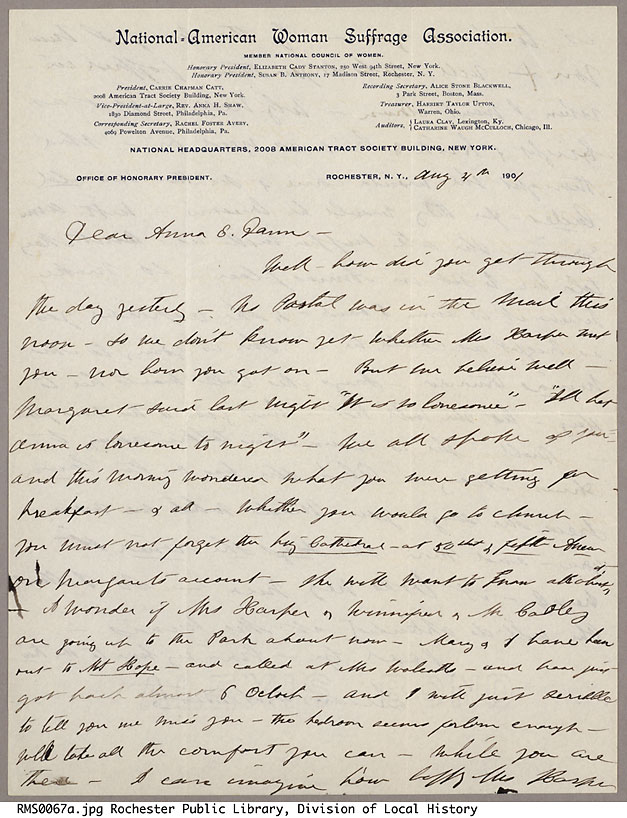 National-American Woman Suffrage Association.
MEMBER NATIONAL COUNCIL OF WOMEN.
Honorary President, ELIZABETH CADY STANTON, 250 West 94th Street, New York.
Honorary President, SUSAN B. ANTHONY, 17 Madison Street, Rochester, N. Y.
President, CARRIE CHAPMAN CATT,
2008 American Tract Society Building, New York.
Vice-President-at-Large, REV. ANNA H. SHAW,
1830 Diamond Street, Philadelphia, Pa.
Corresponding Secretary, RACHEL FOSTER AVERY,
4069 Powelton Avenue, Philadelphia, Pa.
Recording Secretary, ALICE STONE BLACKWELL,
3 Park Street, Boston, Mass.
Treasurer, HARRIET TAYLOR UPTON,
Warren, Ohio.
Auditors, { LAURA CLAY, Lexington, Ky.
CATHARINE WAUGH McCULLOCH, Chicago, Ill.
NATIONAL HEADQUARTERS, 2008 AMERICAN TRACT SOCIETY BUILDING, NEW YORK.
OFFICE OF HONORARY PRESIDENT.
ROCHESTER, N. Y., Aug 4th 1901
Dear Anna E. Dann -
Well - how did you get through
the day yesterdy - No Postal was in the mail this
noon - so we don't know yet whether Mrs Harper met
you - nor how you got on - But we believe well -
Margaret said last night "It is so lonesome" - "I'll bet
Anna is lonesome to night" - We all spoke of you -
and this morning wondered what you were getting for
breakfast - & all - whether you would go to church -
You must not forget the big Cathedral - at 50th & fifth Avenue
on Margarets account - she will want to know all about it
- I wonder if Mrs Harper & Winnifred & Mr
are going up to the Park about now - Mary & I have been
out to Mt Hope - and called at Mrs - and have just
got back almost 6 Oclock - and I will just scribble
to tell you we miss you - the bedroom seems forlorn enough -
Well take all the comfort you can - while you are
there - I can imagine how Mrs Harper
RMS0067a.jpg Rochester Public Library, Division of Local History